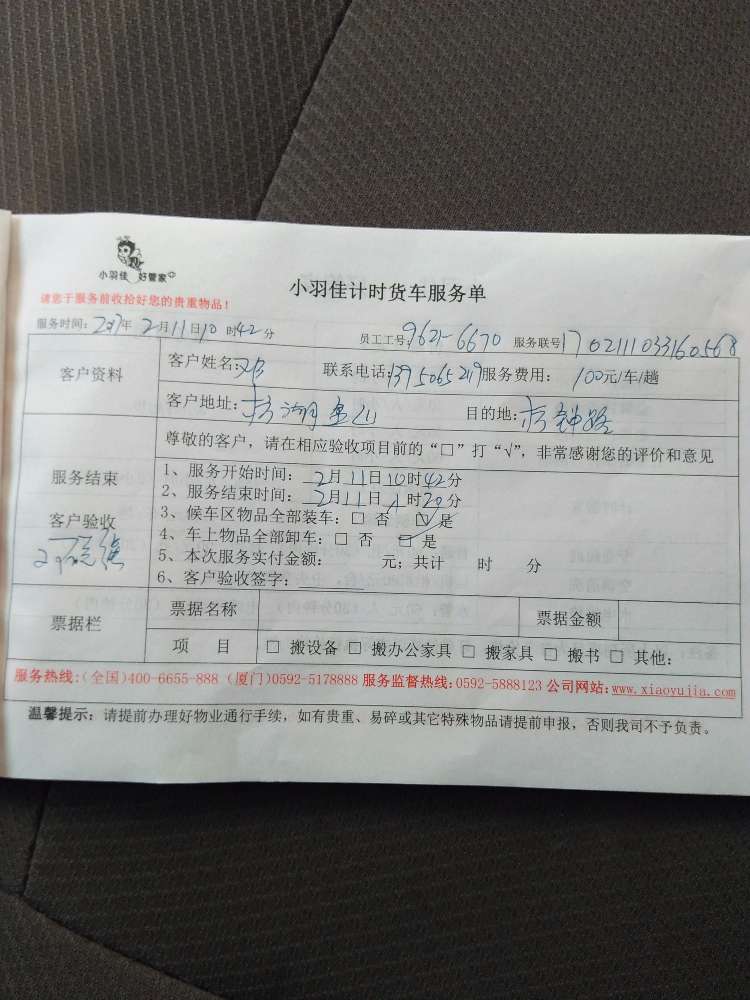 小羽佳 好管家
请您于服务前收拾好您的贵重物品！
小羽佳计时货车服务单
服务时间：2017年2月11日10时42分 员工工号：9621-6670 服务联号
客户资料
客户姓名： 联系电话： 服务费用：100元/车/趟
客户地址： 目的地：
尊敬的客户，请在相应验收项目前的“□”打“√”，非常感谢您的评价和意见
服务结束
客户验收
1、服务开始时间：2月11日10时42分
2、服务结束时间：2月11日1时20分
3、候车区物品全部装车：□ 否 ☑ 是
4、车上物品全部卸车：□ 否 ☑ 是
5、本次服务实付金额： 元；共计 时 分
6、客户验收签字：
票据栏
票据名称 票据金额
项 目 □ 搬设备 □ 搬办公家具 □ 搬家具 □ 搬书 □ 其他：
服务热线：(全国)400-6655-888 (厦门)0592-5178888 服务监督热线：0592-5888123 公司网站：www.xiaoyujia.com
温馨提示：请提前办理好物业通行手续，如有贵重、易碎或其它特殊物品请提前申报，否则我司不予负责。